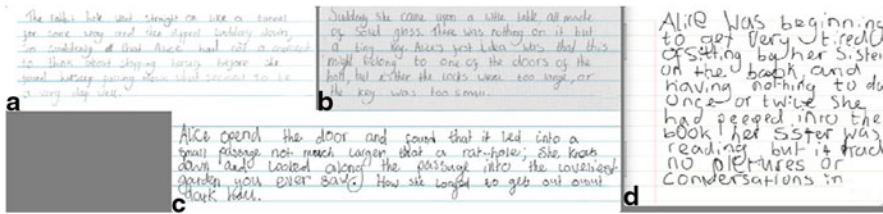 The rabbit hole went straight on like a tunnel
for some way and then dipped suddenly down,
so suddenly that Alice had not a moment
to think about stopping herself before she
found herself falling down what seemed to be
a very deep well.
a
Suddenly she came upon a little table all made
of solid glass. There was nothing on it but
a tiny key. Alice's first idea was that this
might belong to one of the doors of the
hall, but either the locks were too large, or
the key was too small.
b
Alice opend the door and found that it led into a
small passage not much larger that a rat-hole; She knelt
down and looked along the passage into the loveliest
garden you ever saw. How she longed to get out
dark hall.
c
Alice was beginning
to get very tired
of sitting by her sister
on the bank and
having nothing to do
once or twice she
had peeped into the
book her sister was
reading but it had
no pictures or
conversations in
d